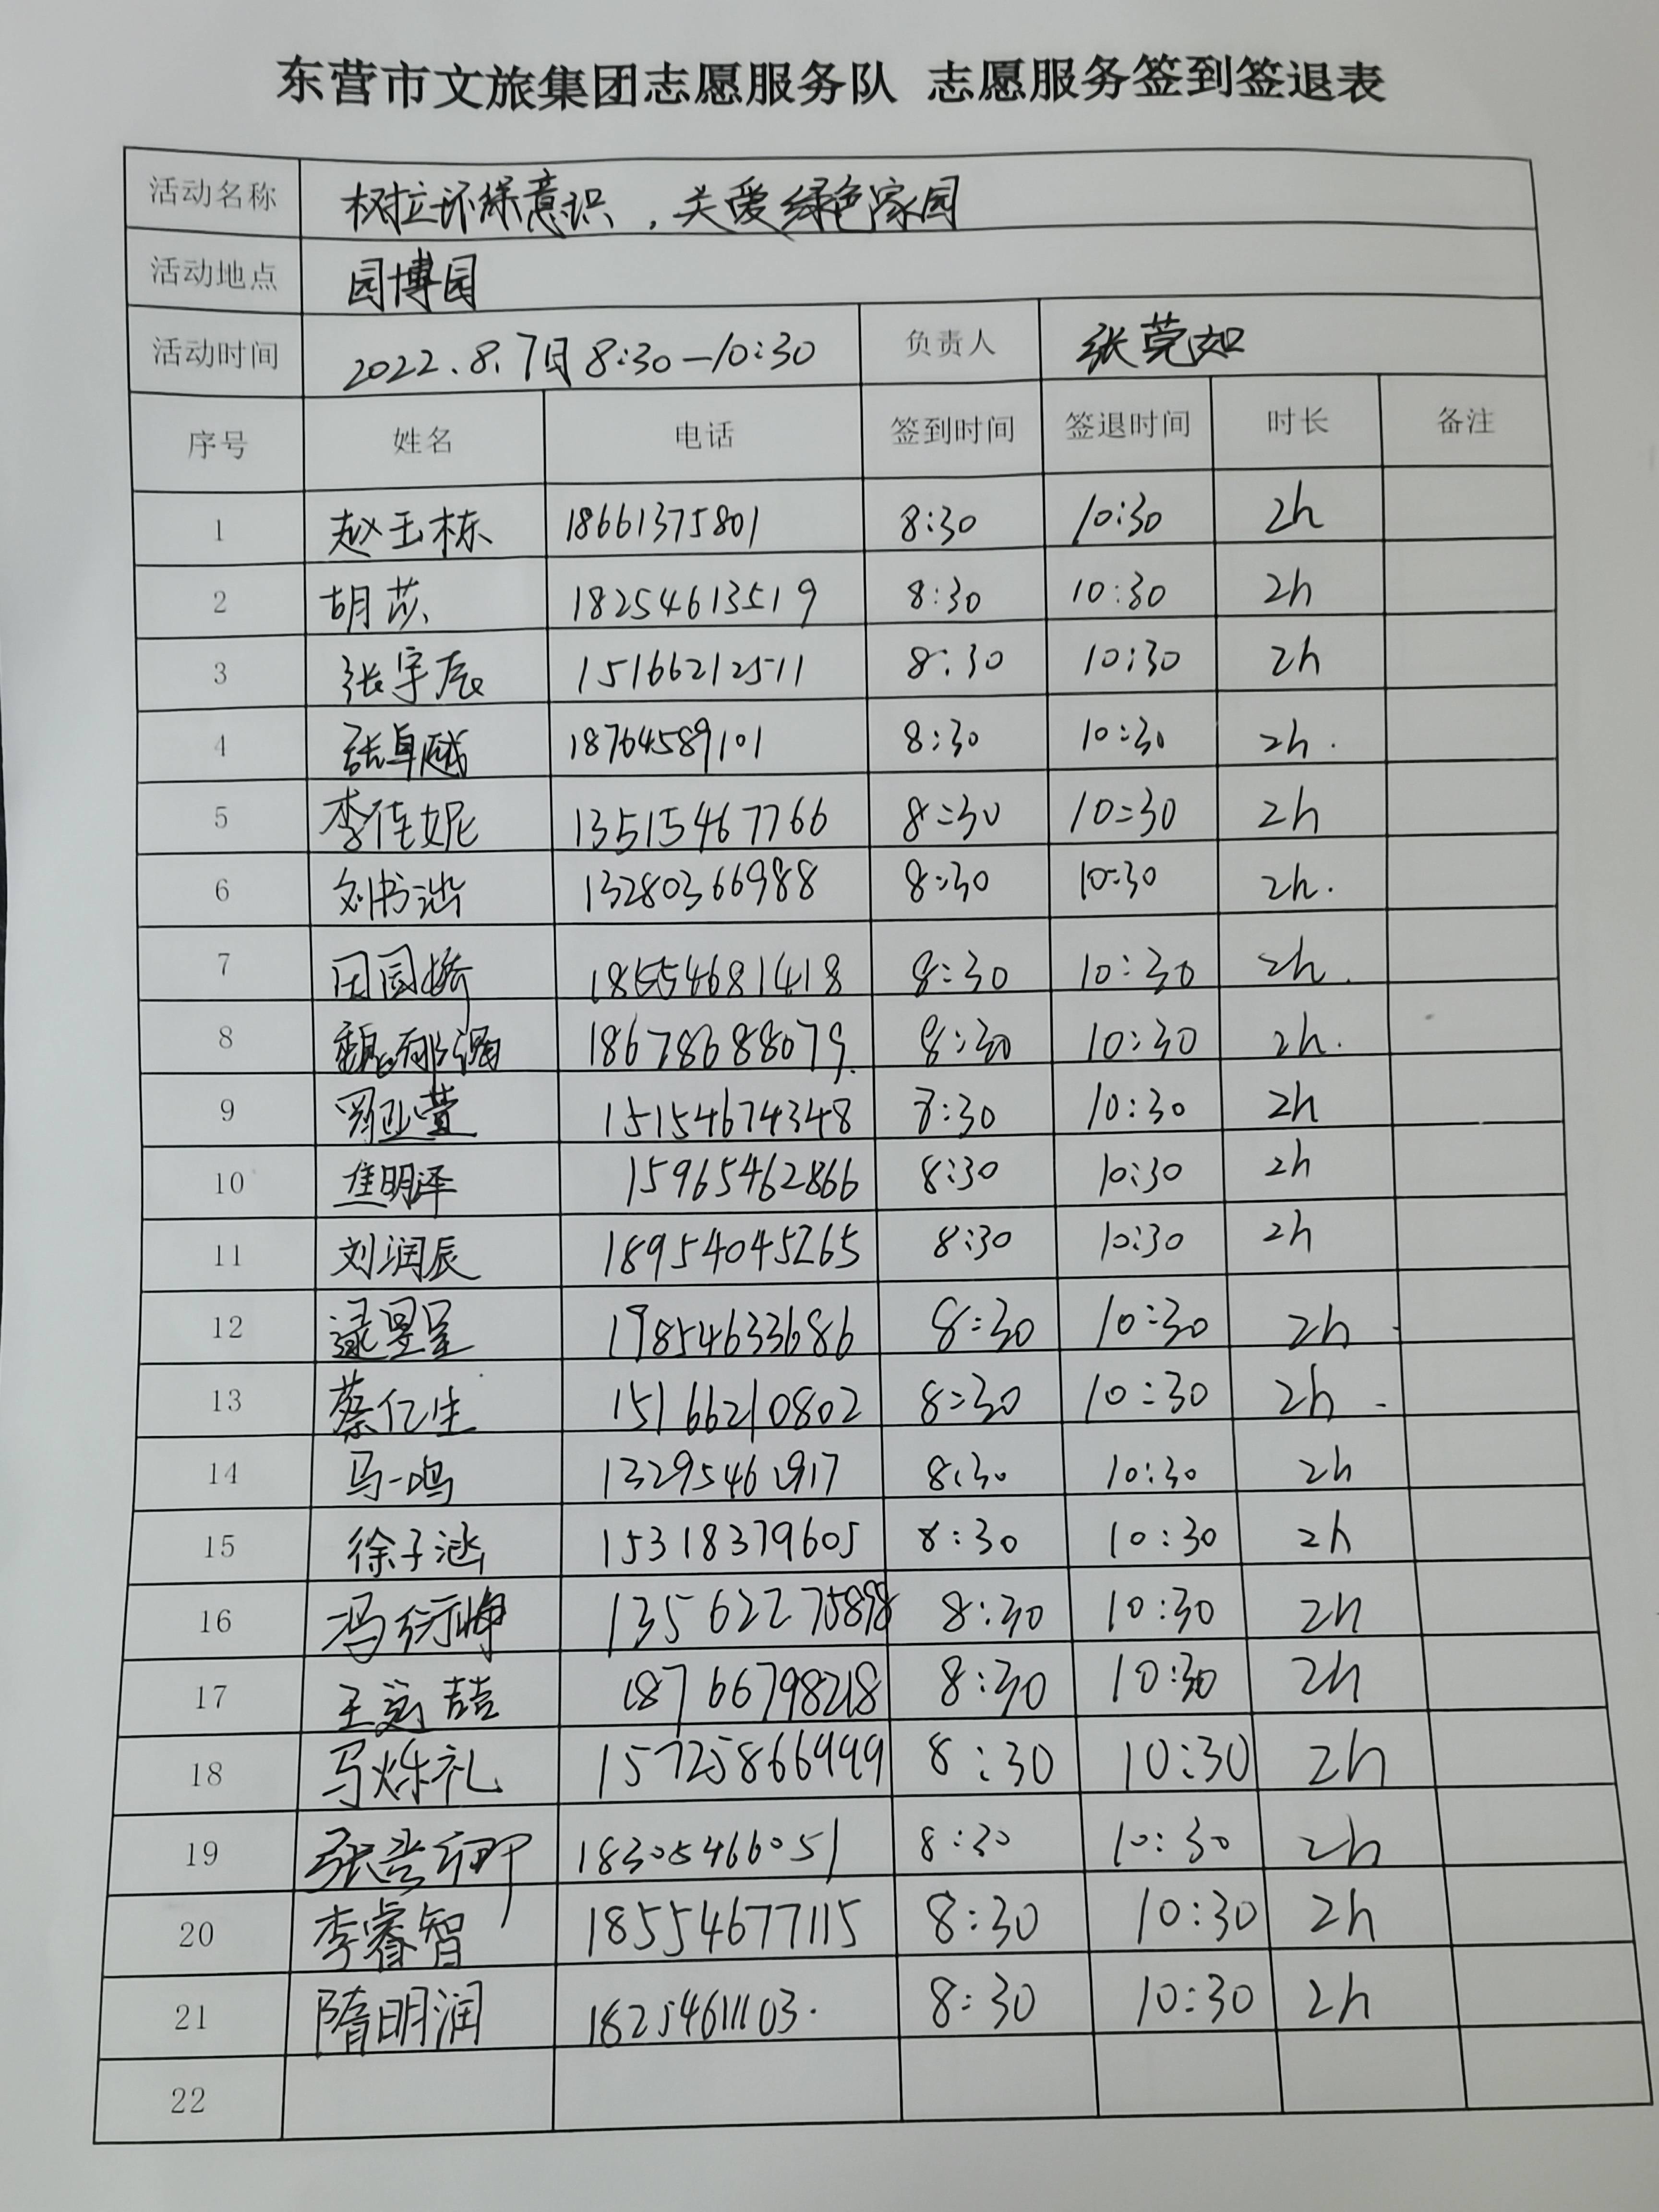 东营市文旅集团志愿服务队 志愿服务签到签退表
活动名称 树立环保意识，关爱绿色家园
活动地点 园博园
活动时间 2022.8.7日 8:30—10:30 负责人 张莞如
序号 姓名 电话 签到时间 签退时间 时长 备注
1 赵玉栋 18661375801 8:30 10:30 2h
2 胡莎 18254613519 8:30 10:30 2h
3 张宇辰 15166212511 8:30 10:30 2h
4 张卓越 18764589101 8:30 10:30 2h.
5 李佳妮 13515467766 8:30 10:30 2h
6 刘书涵 13280366988 8:30 10:30 2h.
7 18654681418 8:30 10:30 2h.
8 18678688079. 8:30 10:30 2h.
9 15154674348 8:30 10:30 2h
10 焦明泽 15965462866 8:30 10:30 2h
11 刘润辰 18954045265 8:30 10:30 2h
12 19854633686 8:30 10:30 2h
13 蔡亿生 15166210802 8:30 10:30 2h
14 马一鸣 8:30 10:30 2h
15 徐子涵 15318379605 8:30 10:30 2h
16 13562275898 8:30 10:30 2h
17 18766798218 8:30 10:30 2h
18 马烁礼 15725866999 8:30 10:30 2h
19 18305466051 8:30 10:30 2h
20 李睿智 18554677115 8:30 10:30 2h
21 隋明润 18254611103. 8:30 10:30 2h
22